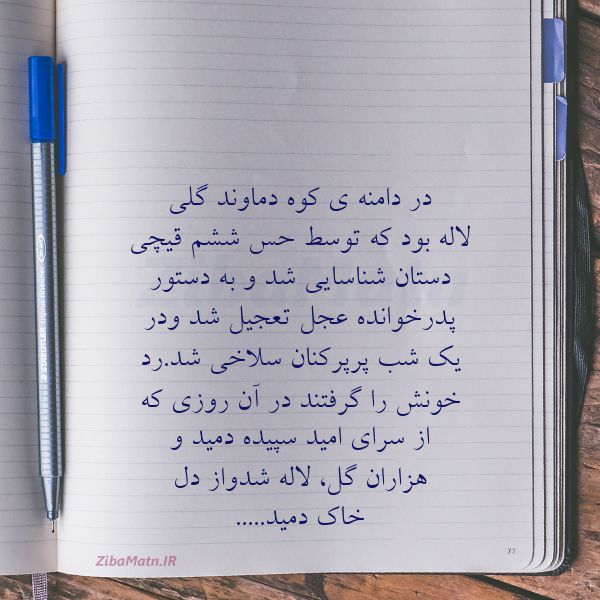 در دامنه ی کوه دماوند گلی
لاله بود که توسط حس ششم قیچی
دستان شناسایی شد و به دستور
پدرخوانده عجل تعجیل شد ودر
یک شب پرپرکنان سلاخی شد.رد
خونش را گرفتند در آن روزی که
از سرای امید سپیده دمید و
هزاران گل، لاله شدواز دل
خاک دمید.....
77
ZibaMatn.IR
ZibaMatn
STAEDTLER triplus fineliner